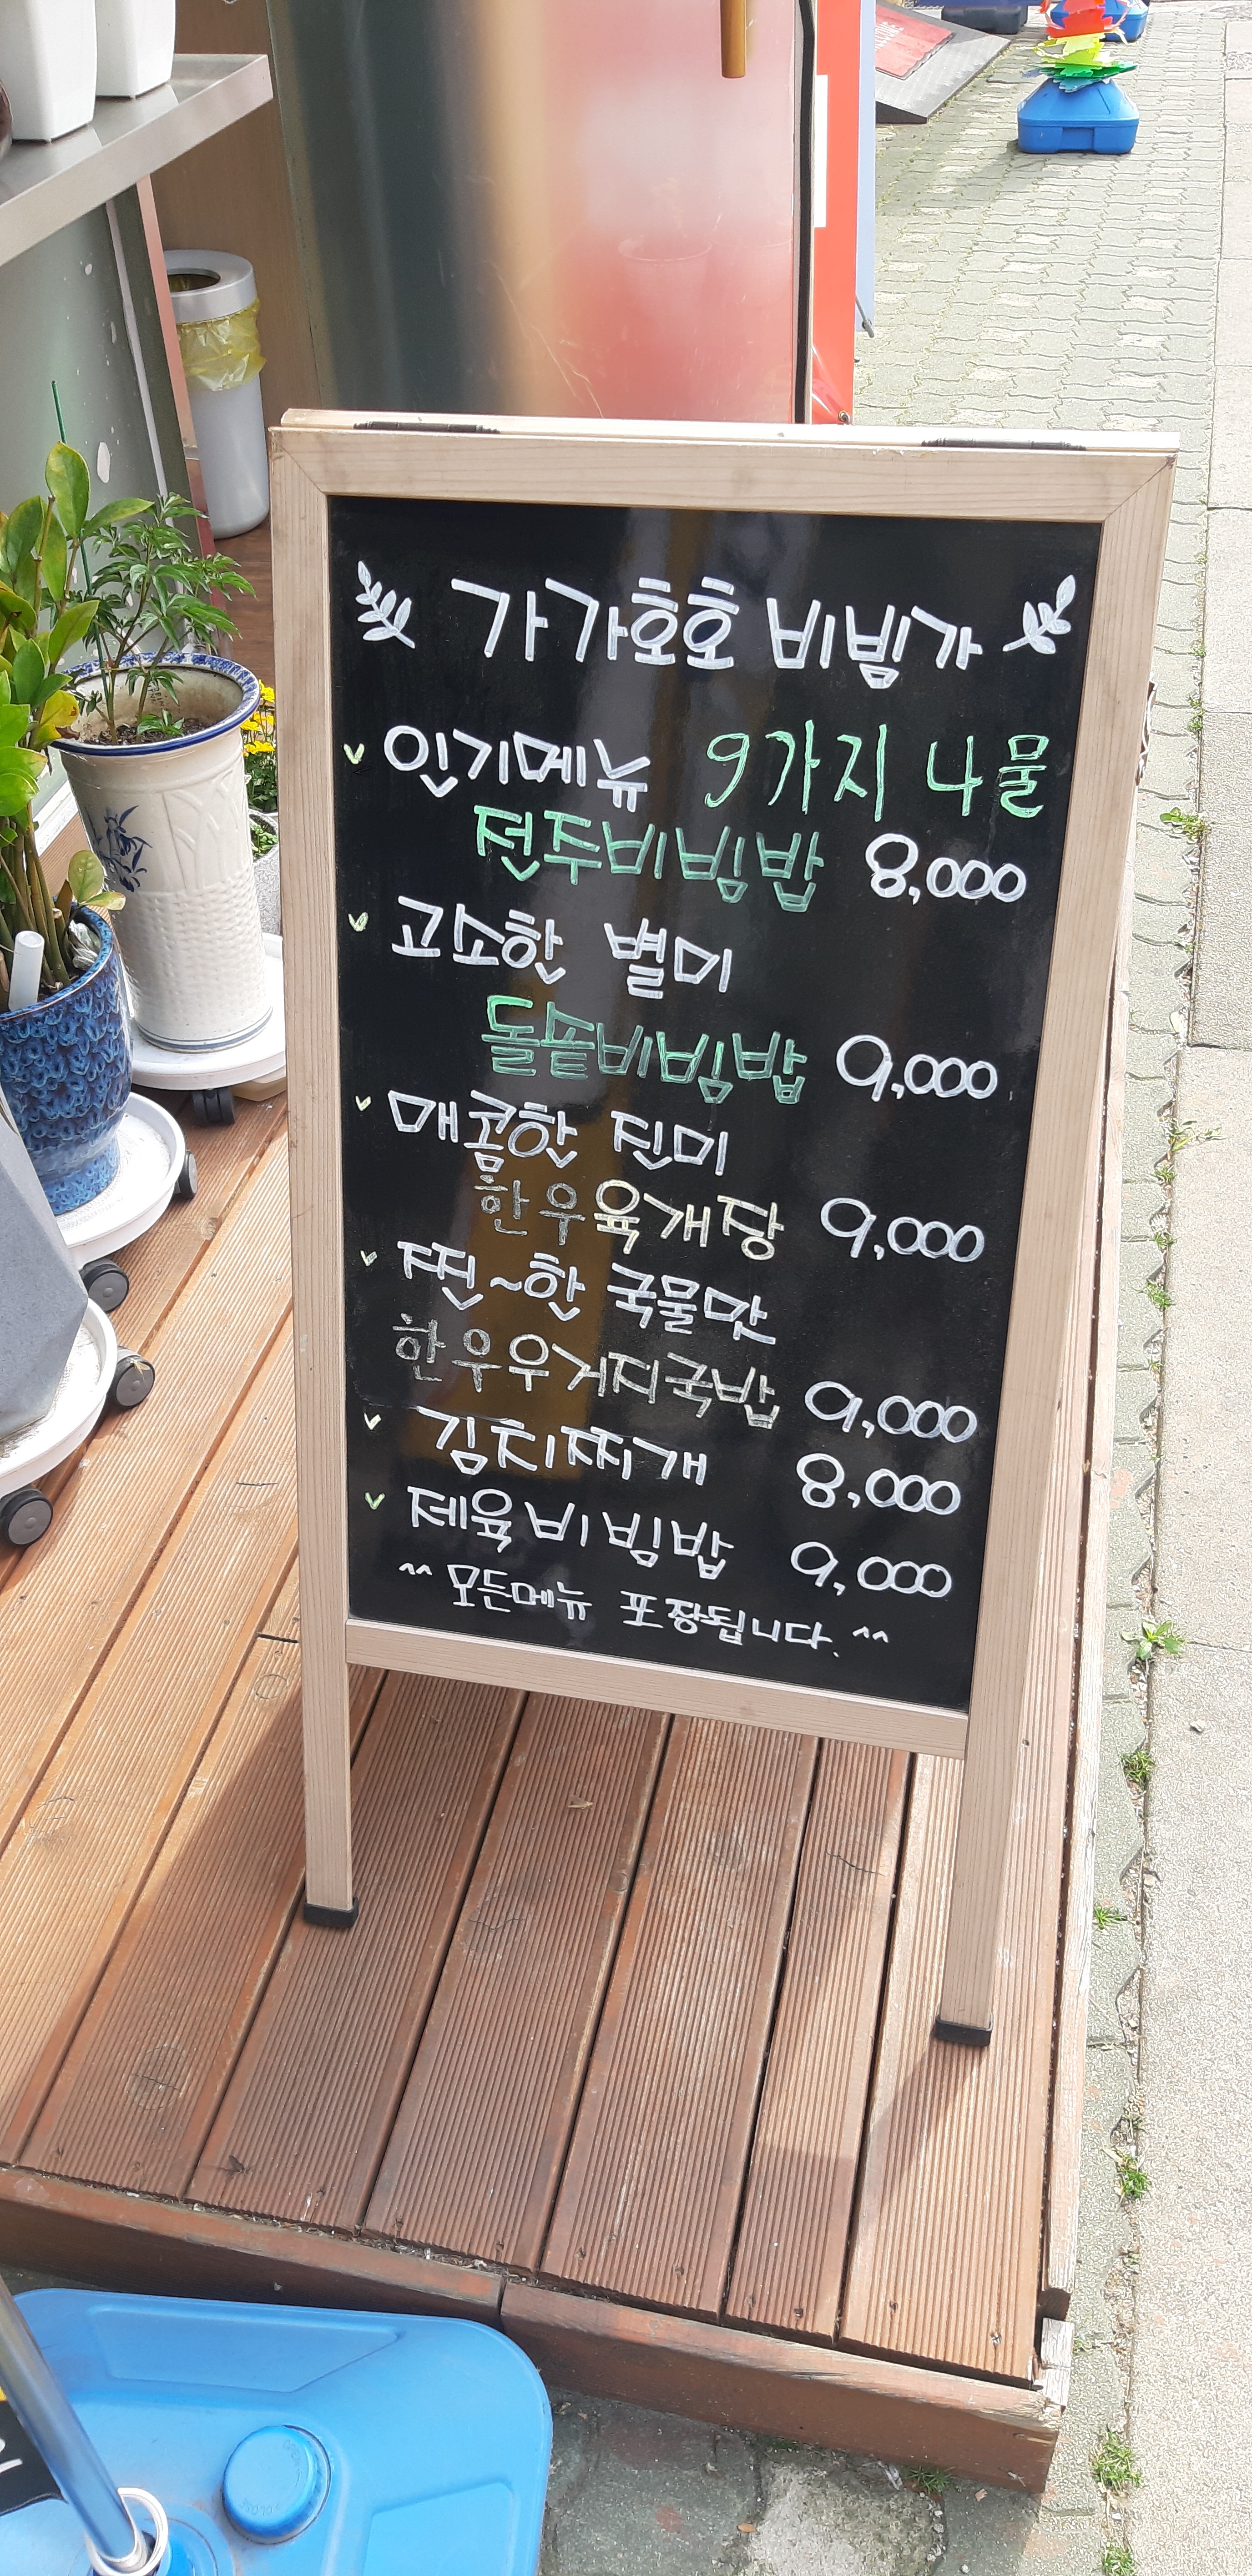 가가호호 비빔가
인기메뉴 9가지 나물
전주비빔밥 8,000
고소한 별미
돌솥비빔밥 9,000
매콤한 진미
한우육개장 9,000
찐~한 국물맛
한우우거지국밥 9,000
김치찌개 8,000
제육비빔밥 9,000
^^ 모든메뉴 포장됩니다. ^^